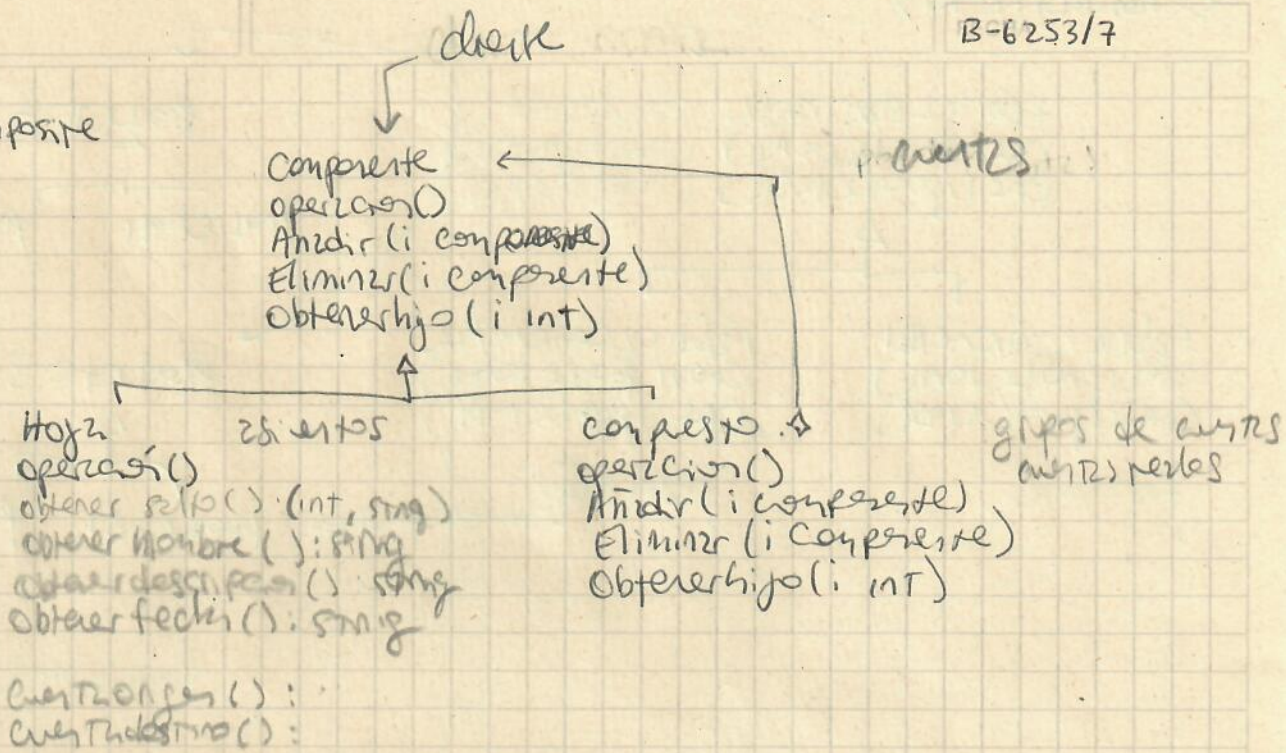 B-6253/7
cliente
posite
Componente
operacion()
Añadir (i componente)
Eliminar (i componente)
Obtenerhijo (i int)
cuentas
Hoja
asientos
operación()
obtener saldo() (int, string)
obtener Nombre () : string
obtener descripcion () string
obtener fecha () : string
cuentaorigen () :
cuentadestino () :
compuesto
operacion()
Añadir (i componente)
Eliminar (i Componente)
Obtenerhijo (i int)
grupos de cuentas
cuentas reales